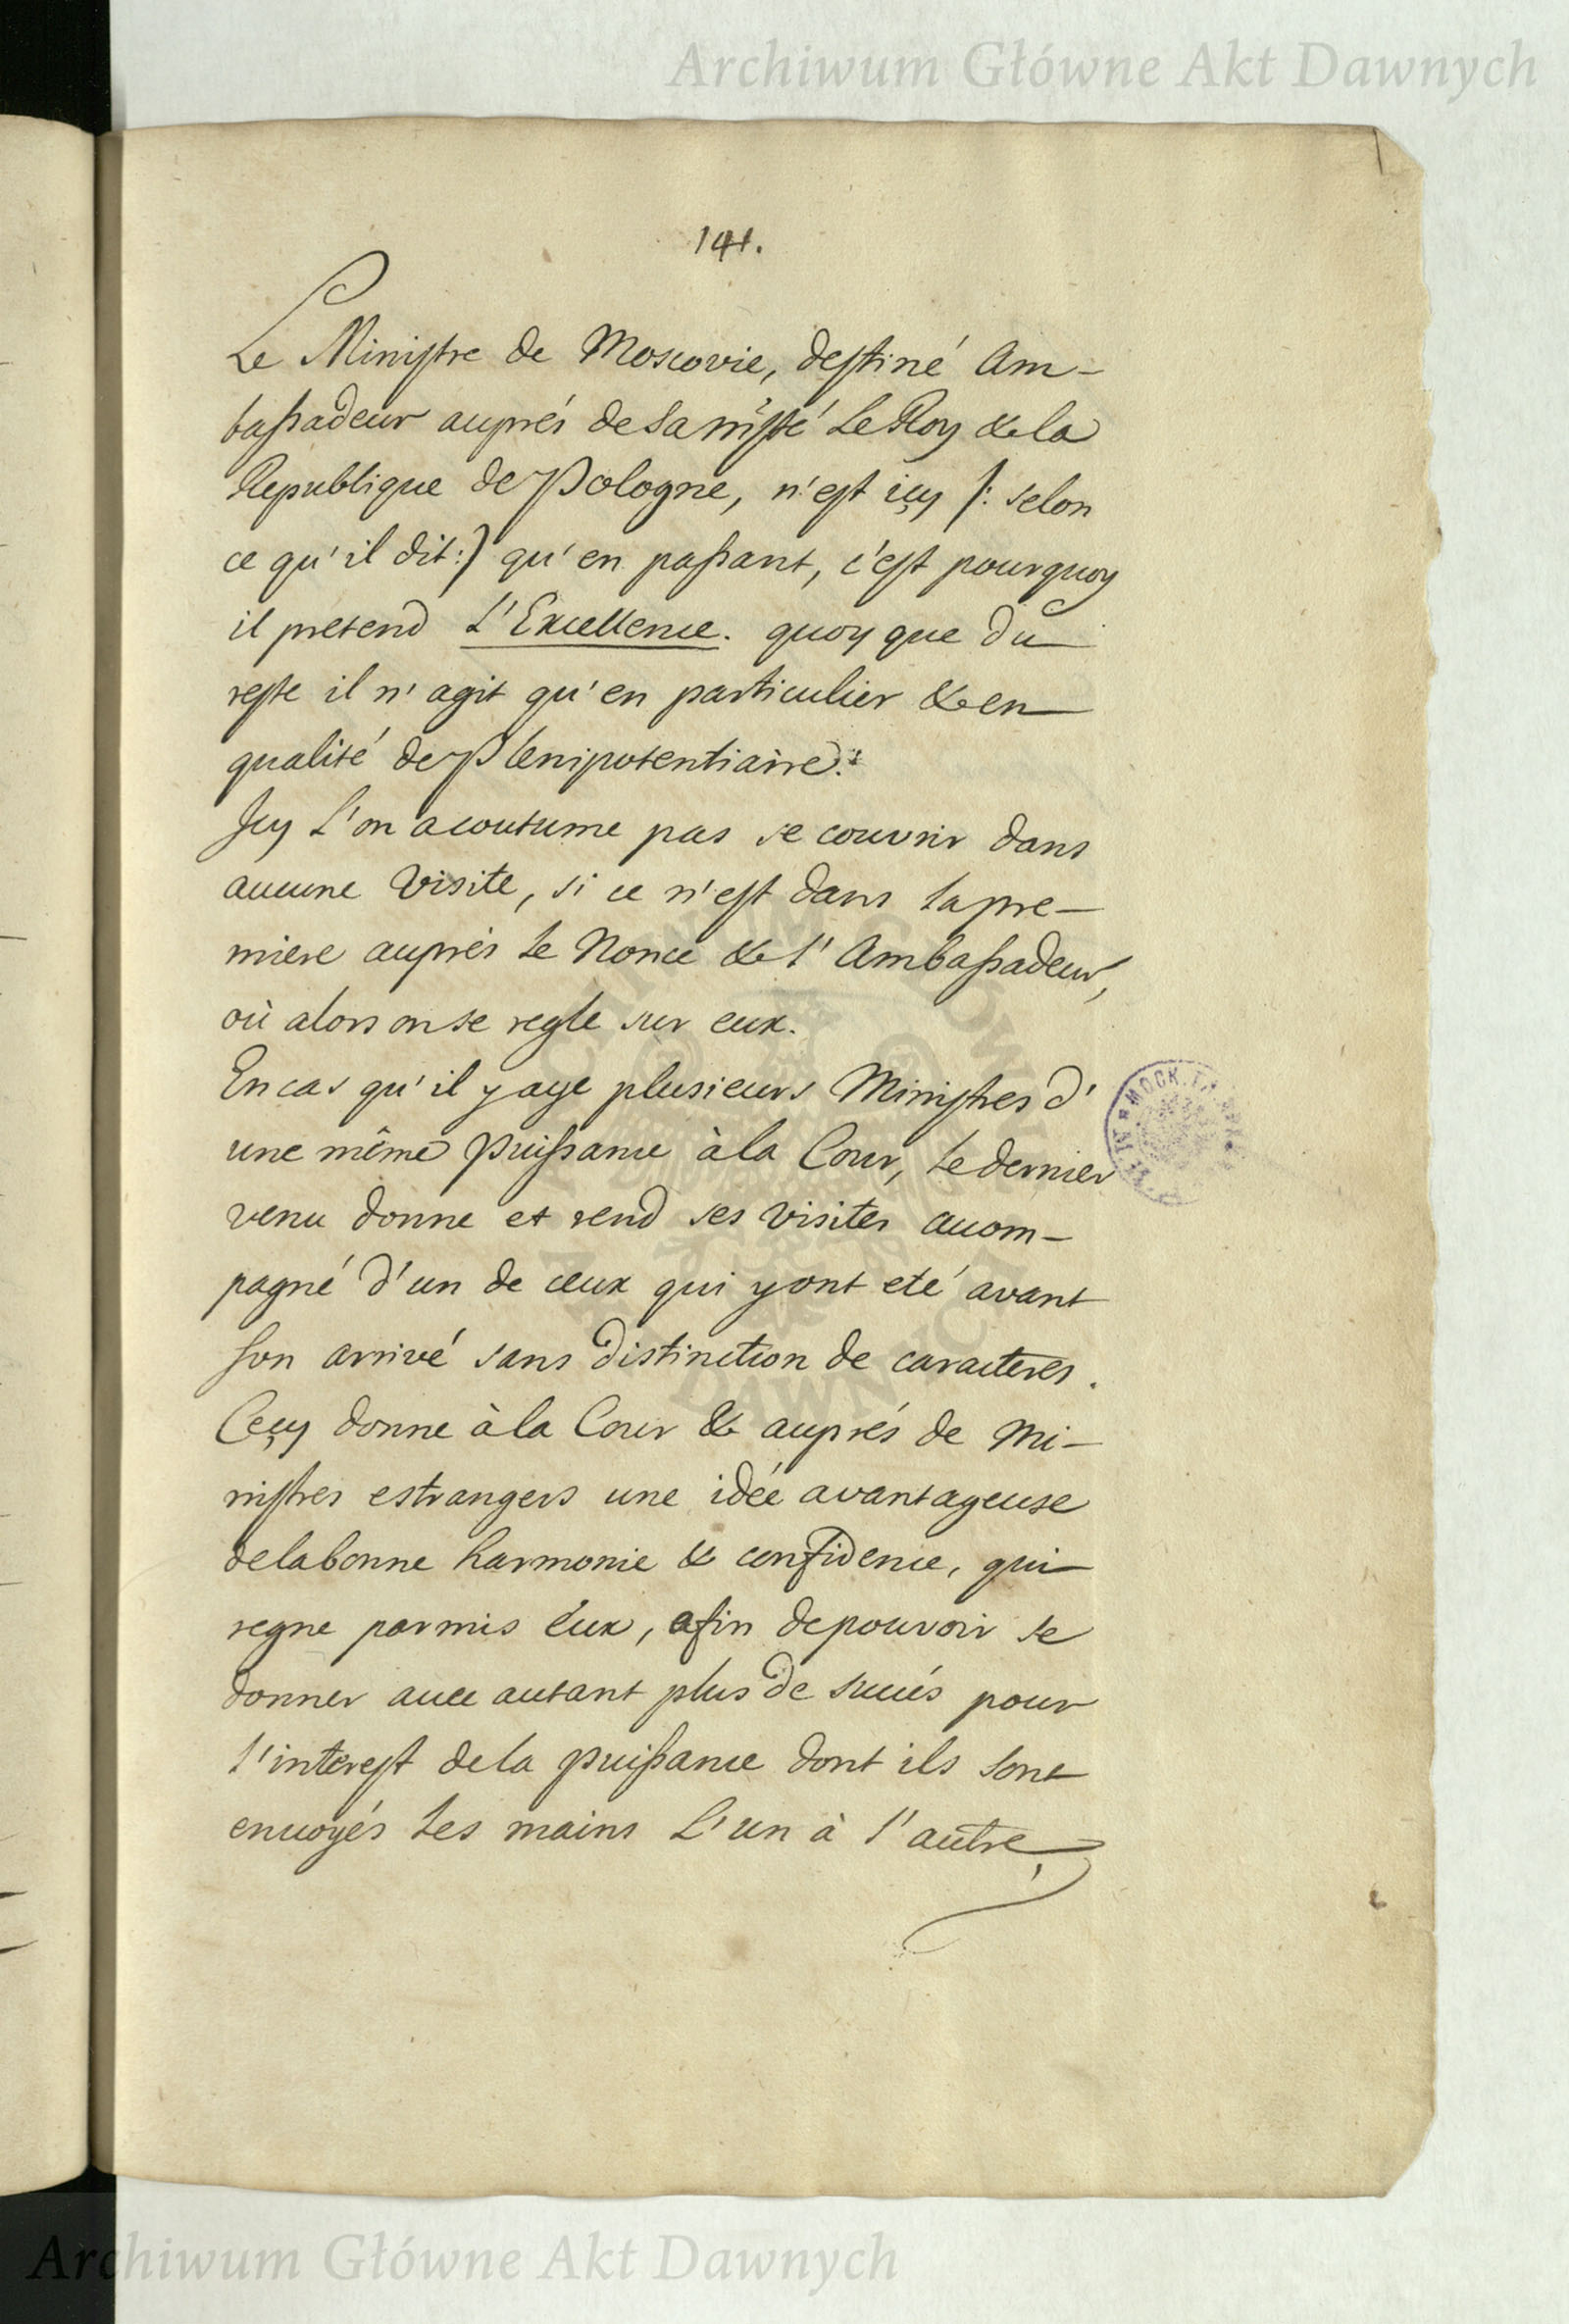 Archiwum Główne Akt Dawnych
141.
Le Ministre de Moscovie, destiné Am-
bassadeur auprés de Sa Mſté Le Roy & la
Republique de Pologne, n'est icy /: selon
ce qu'il dit :/ qu'en passant, c'est pourquoy
il pretend L'Excellence. quoy que du
reste il n'agit qu'en particulier & en
qualité de Plenipotentiaire.
Icy L'on acoutume pas se couvrir dans
aucune Visite, si ce n'est dans la pre-
miere auprés le Nonce & l'Ambassadeur,
où alors on se regle sur eux.
En cas qu'il y aye plusieurs Ministres d'
une même Puissance à la Cour, le dernier
venu donne et rend ses visites accom-
pagné d'un de ceux qui y ont eté avant
son arrivé sans distinction de caracteres.
Ceçy donne à la Cour & auprés de Mi-
nistres estrangers une idée avantageuse
de la bonne harmonie & confidence, qui
regne parmis eux, afin de pouvoir se
donner avec autant plus de succés pour
l'interest de la puissance dont ils sont
envoyés les mains L'un à l'autre
МОСК. ГЛ.
ARCHIWUM GŁÓWNE AKT DAWNYCH
Archiwum Główne Akt Dawnych